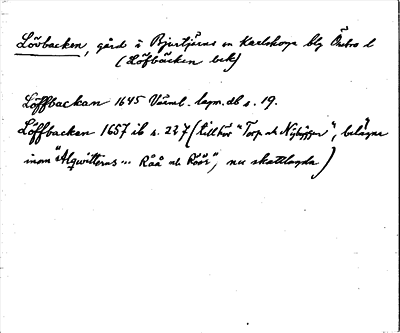 Lövbacken, gård i Bjurtjärns sn Karlskoga blg Örebro l
(Löfbäcken bek)
Löffbackan 1645 Värml. lagm.db s. 19.
Löffbacken 1657 ib s. 237 (tillhör "Torp och Nybyggen", belägne
inom "Alqwitterns ... Råå och Röör", nu skattlagda)